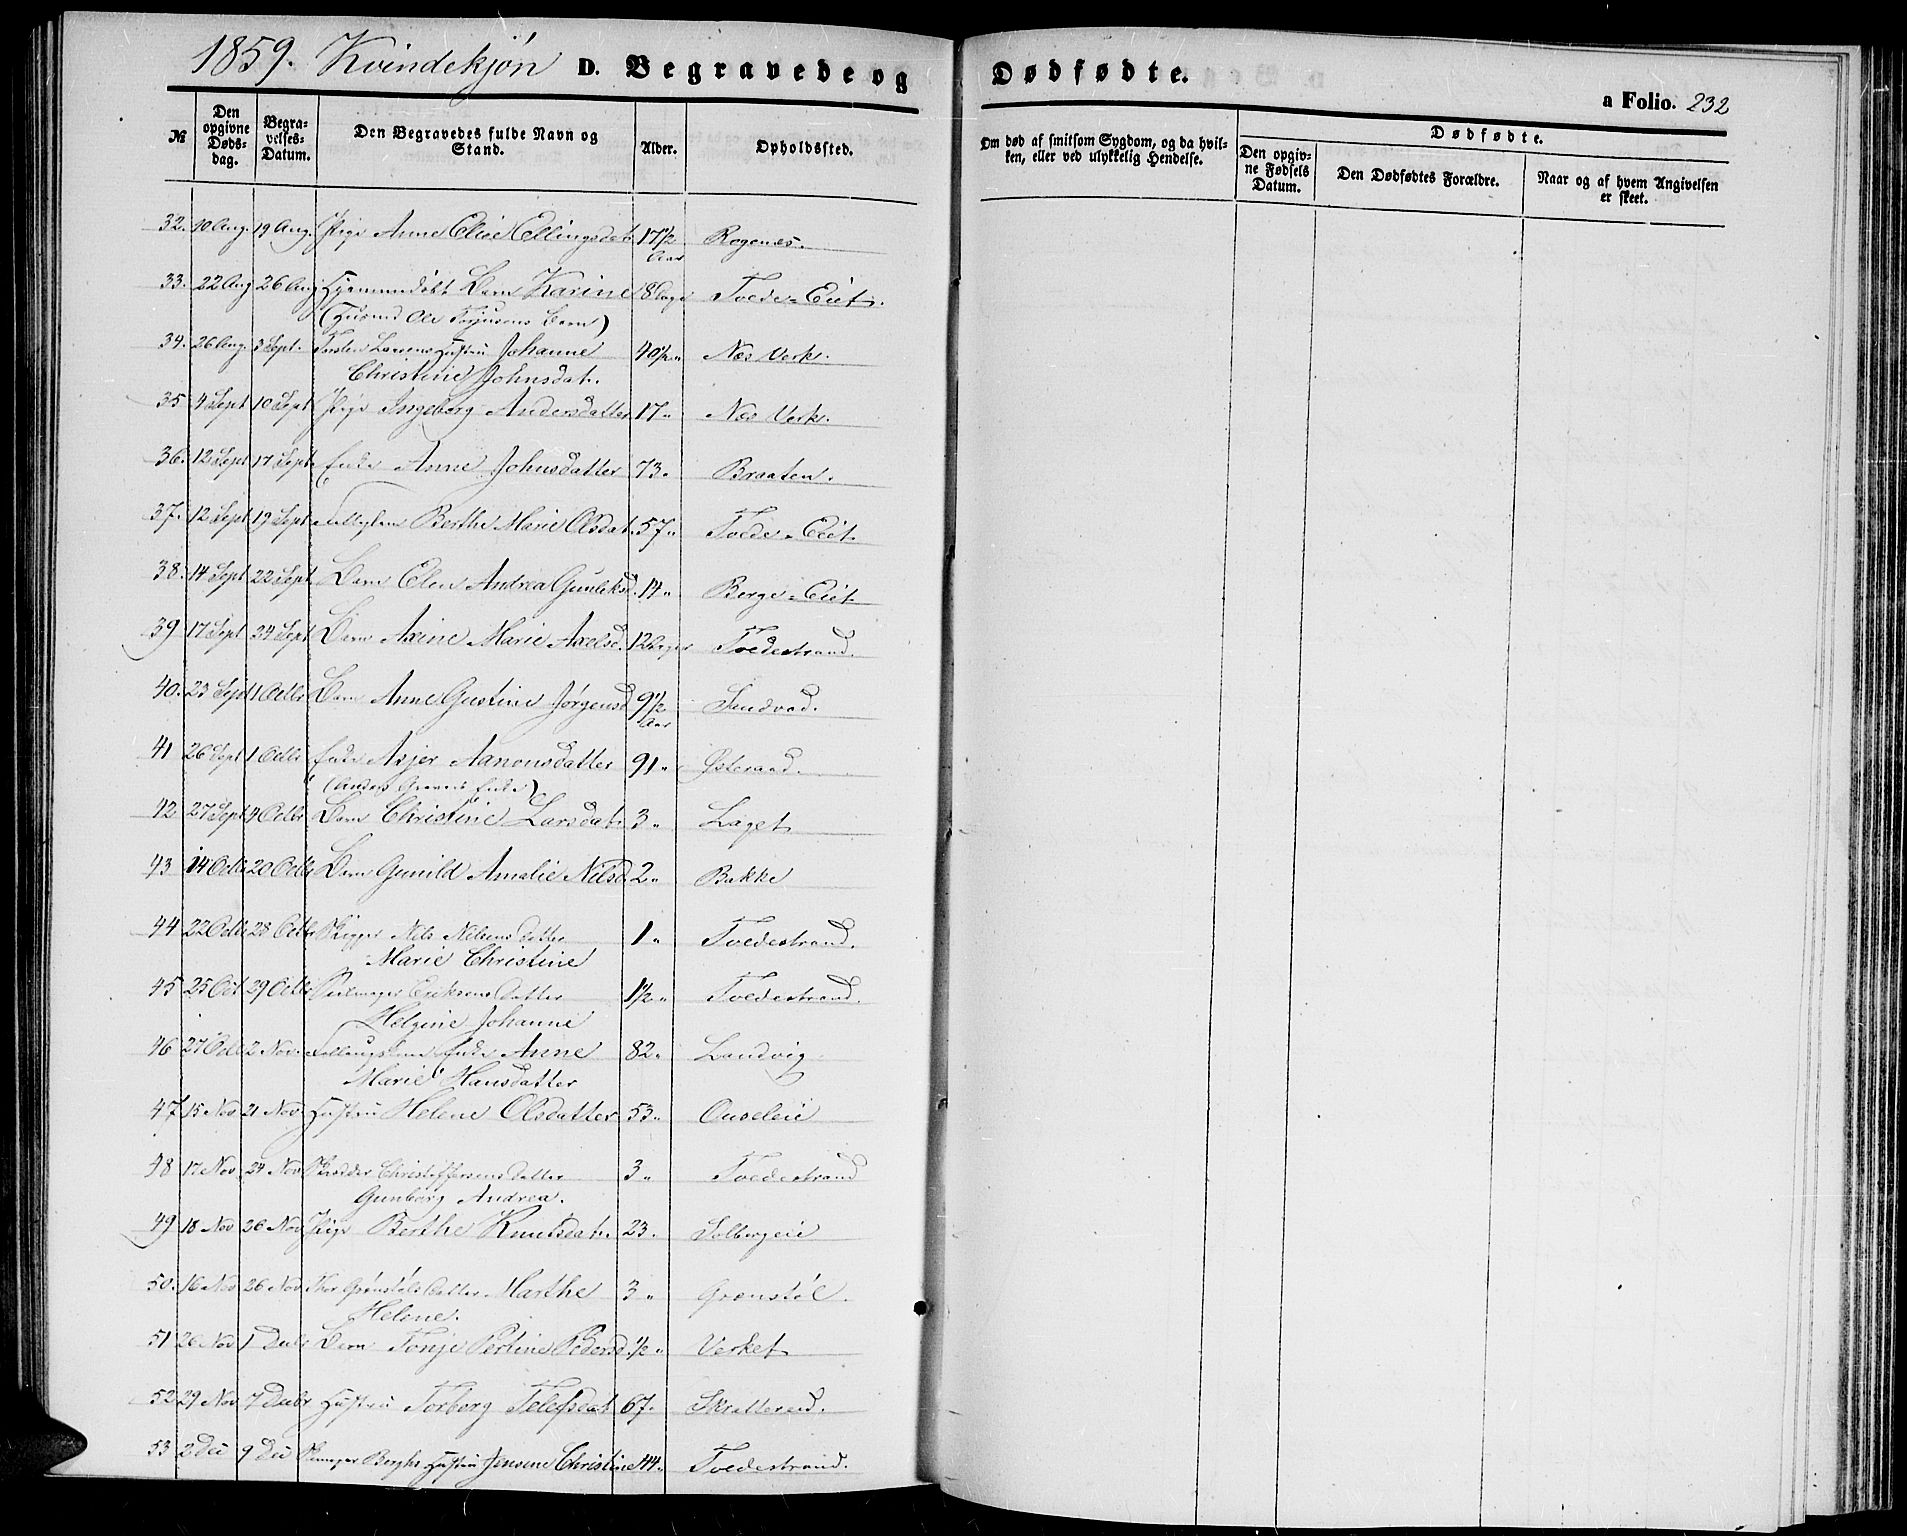 1859. Kvindekjøn D. Begravede og Dødfødte.
a Folio. 232
№ Den opgivne Døds-dag. Begra-velses-Datum. Den Begravedes fulde Navn og Stand. Alder. Opholdssted.
Om død af smitsom Sygdom, og da hvil-ken, eller ved ulykkelig Hendelse. Dødfødte. Den opgiv-ne Fødsels Datum. Den Dødfødtes Forældre. Naar og af hvem Angivelsen er skeet.
32. 10 Aug. 19 Aug. Pige Anne Elise Ellingsdat. 17 1/2 Aar Rogenæs.
33. 22 Aug 26 Aug Hjemmedøbt Barn Karine 8 Dage Tvede-Eiet.
(Husmd Ole Terjusens Barn)
34. 26 Aug. 3 Sept. Torsten Larsens Hustru Johanne 40 1/2 " Næs Verk.
Christine Johnsdat.
35 4 Sept 10 Sept Pige Ingeborg Andersdatter 17 " Næs Verk.
36. 12 Sept 17 Sept. Enke Anne Johnsdatter 73 " Braaten.
37. 12 Sept 19 Sept Fattiglem Berthe Marie Olsdat. 57 " Tvede-Eiet
38. 14 Sept 22 Sept Barn Elen Andrea Gunleksd. 14 " Berge-Eiet
39 17 Sept 24 Sept Barn Axine Marie Axelsd. 12 Dager Tvedestrand.
40. 23 Sept 1 Octbr Barn Anne Gustine Jørgensd 9 1/2 Aar Sandvad.
41 26 Sept 1 Octbr Enke Asjer Aanonsdatter 91 " Østeraad.
(Anders Enke)
42 27 Sept 4 Octbr Barn Christine Larsdat. 3 " Laget
43 14 Octb 20 Octbr Barn Gunild Amalie Nilsd. 2 " Bakke
44 22 Octb 28 Octbr Rigger Nils Nilsens Datter 1 " Tvedestrand.
Marie Christine
45 25 Oct 29 Octbr Seilmager Eriksens Datter 1 1/2 " Tvedestrand.
Helgine Johanne
46 27 Octb 2 Nov. Fattigslem Enke Anne 82 " Landvig
Marie Hansdatter
47 15 Nov 21 Nov. Hustru Helene Olsdatter 53 " Ouseleie
48 17 Nov 24 Nov Christoffersens Datter 3 " Tvedestrand
Gunborg Andrea.
49 18 Nov 26 Nov Pige Berthe Knutsdat. 23. Solbergeie
50. 16 Nov 26 Nov. Thor Grønstøls Datter Marthe 3 " Grønstøl.
Helene.
51 26 Nov 1 Decbr Barn Tonje Pertine Pedersd. 1/2 " Verket
52 29 Nov 7 Decbr Hustru Torborg Telefsdat 67 " Skrattereid.
53 2 Dec 9 Dec Berghs Hustru Jensine Christine 44 " Tvedestrand.